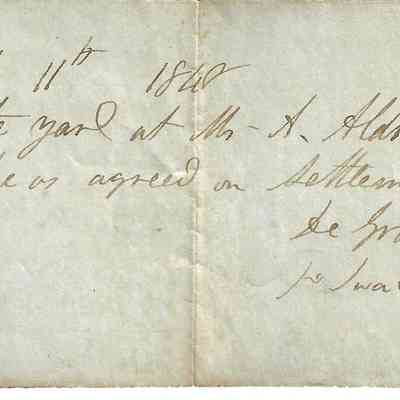 11th 1848
yard at Mr. A. Ald
as agreed on Settlem
De Gr
pr Swa